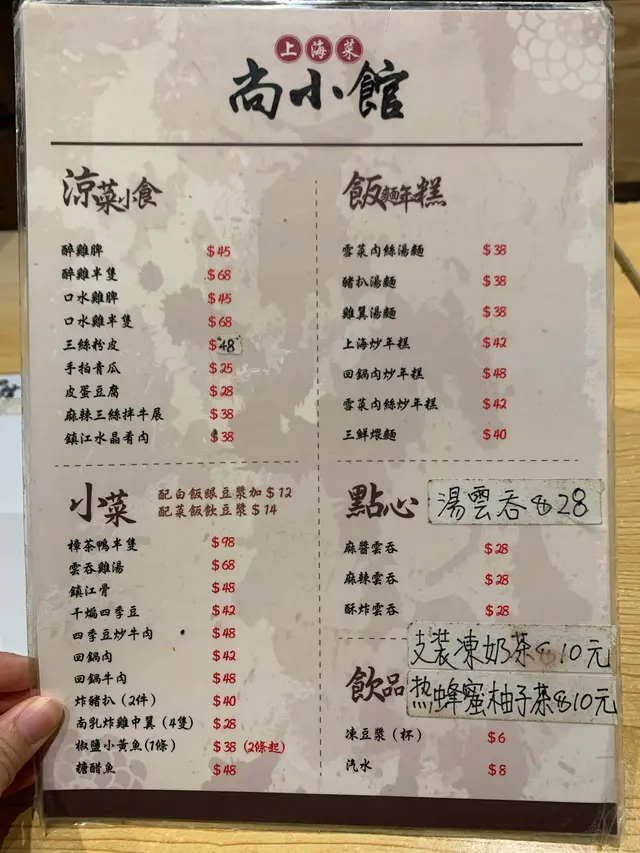 上海菜
尚小館
涼菜小食
醉雞脾 $45
醉雞半隻 $68
口水雞脾 $45
口水雞半隻 $68
三絲粉皮 $48
手拍青瓜 $25
皮蛋豆腐 $28
麻辣三絲拌牛展 $38
鎮江水晶肴肉 $38
飯麵年糕
雪菜肉絲湯麵 $38
豬扒湯麵 $38
雞翼湯麵 $38
上海炒年糕 $42
回鍋肉炒年糕 $48
雪菜肉絲炒年糕 $42
三鮮煨麵 $40
小菜
配白飯跟豆漿加 $12
配菜飯飲豆漿 $14
樟茶鴨半隻 $98
雲吞雞湯 $68
鎮江骨 $48
干煸四季豆 $42
四季豆炒牛肉 $48
回鍋肉 $42
回鍋牛肉 $48
炸豬扒（2件） $40
南乳炸雞中翼（4隻） $28
椒鹽小黃魚(1條) $38 (2條起)
糖醋魚 $48
點心 湯雲吞 $28
麻醬雲吞 $28
麻辣雲吞 $28
酥炸雲吞 $28
支装凍奶茶$10元
飲品 热蜂蜜柚子茶$10元
凍豆漿（杯） $6
汽水 $8